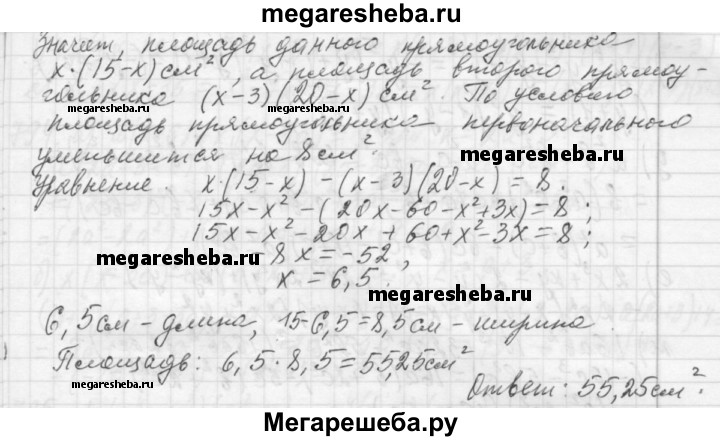 megaresheba.ru
Значит, площадь данного прямоугольника
x·(15-x)см², а площадь второго прямоу-
гольника (x-3)(20-x) см². По условию
megaresheba.ru
площадь прямоугольника первоначального
уменьшится на 8 см².
megaresheba.ru
Уравнение. x·(15-x) - (x-3)(20-x) = 8.
15x-x² - (20x-60-x²+3x)=8;
15x-x²-20x+60+x²-3x=8;
megaresheba.ru
8x=-52,
x=6,5.
megaresheba.ru
6,5см-длина, 15-6,5=8,5см-ширина.
Площадь: 6,5·8,5=55,25см²
megaresheba.ru
Ответ: 55,25см².
Мегарешеба.ру